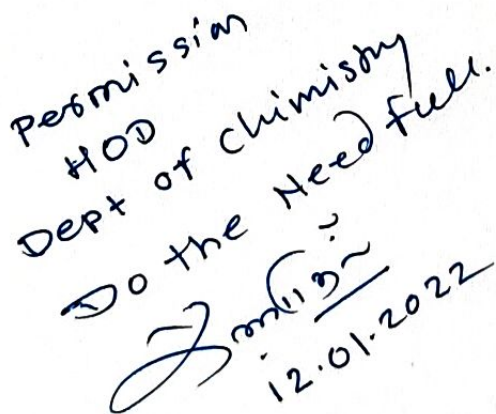 Permission
HOD
Dept of Chimistry
Do the Need full.
12.01.2022